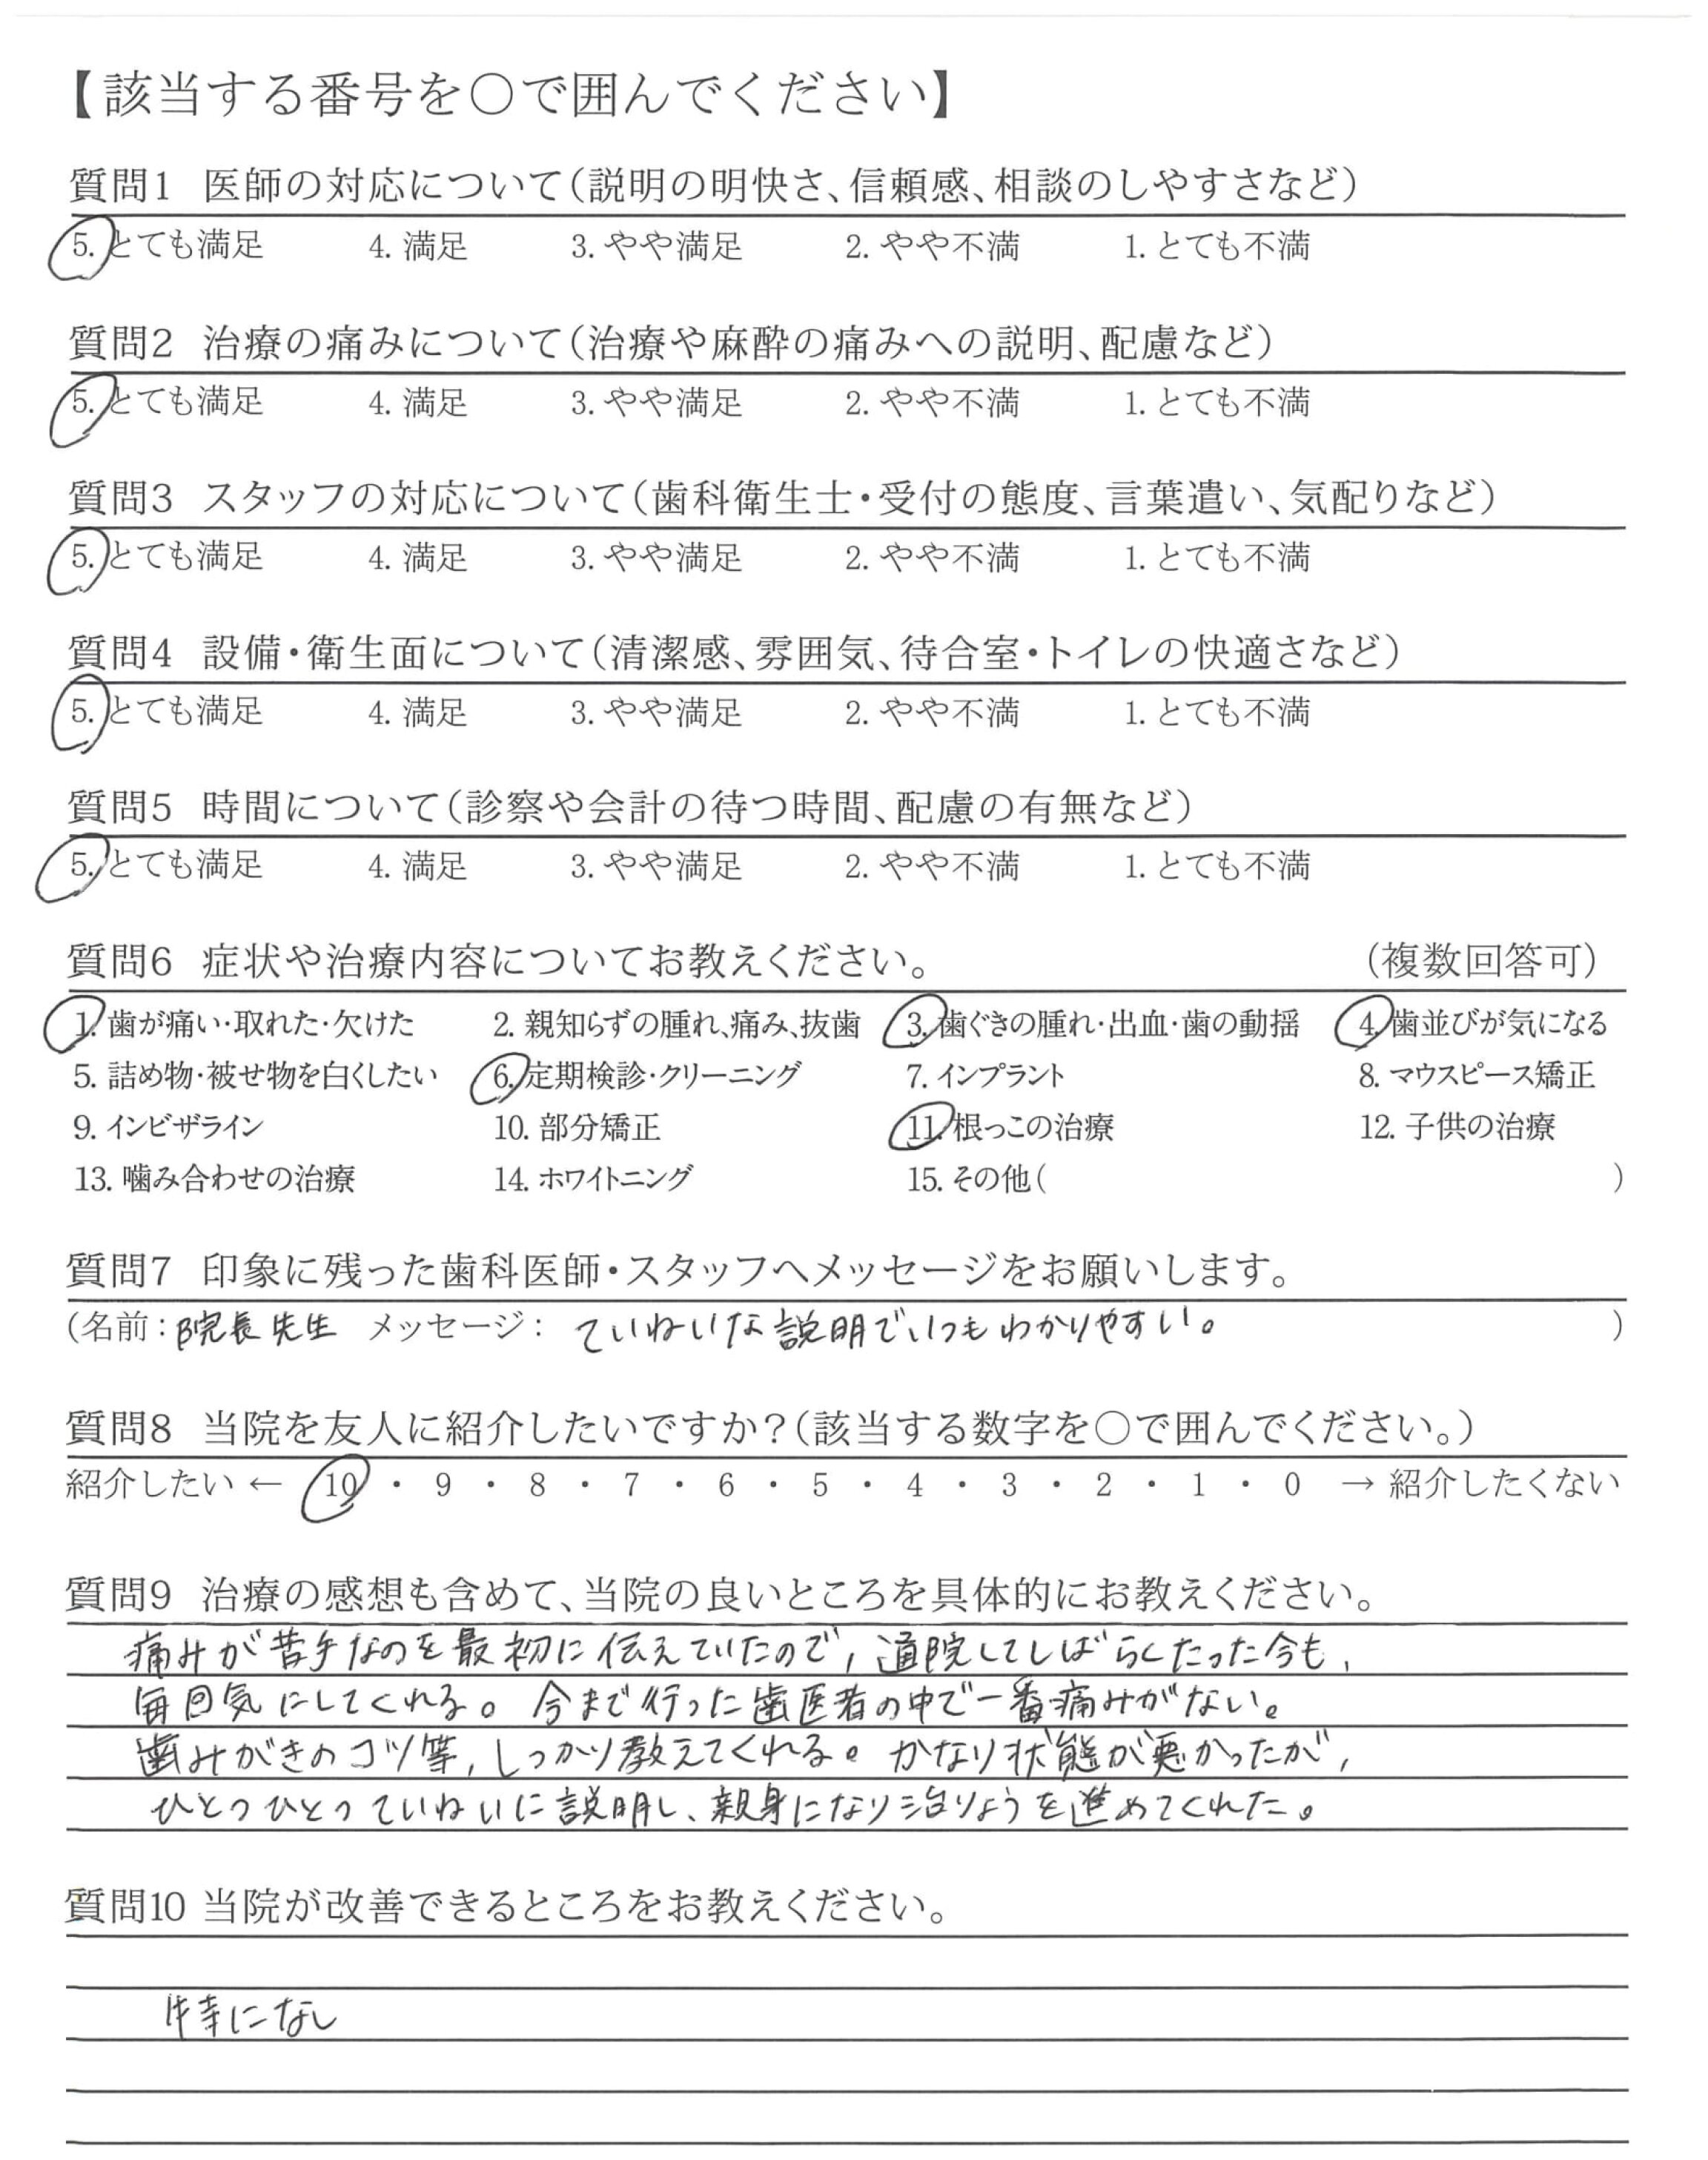 【該当する番号を○で囲んでください】
質問1 医師の対応について(説明の明快さ、信頼感、相談のしやすさなど)
5. とても満足 4. 満足 3. やや満足 2. やや不満 1. とても不満
質問2 治療の痛みについて(治療や麻酔の痛みへの説明、配慮など)
5. とても満足 4. 満足 3. やや満足 2. やや不満 1. とても不満
質問3 スタッフの対応について(歯科衛生士・受付の態度、言葉遣い、気配りなど)
5. とても満足 4. 満足 3. やや満足 2. やや不満 1. とても不満
質問4 設備・衛生面について(清潔感、雰囲気、待合室・トイレの快適さなど)
5. とても満足 4. 満足 3. やや満足 2. やや不満 1. とても不満
質問5 時間について(診察や会計の待つ時間、配慮の有無など)
5. とても満足 4. 満足 3. やや満足 2. やや不満 1. とても不満
質問6 症状や治療内容についてお教えください。 (複数回答可)
1. 歯が痛い・取れた・欠けた 2. 親知らずの腫れ、痛み、抜歯 3. 歯ぐきの腫れ・出血・歯の動揺 4. 歯並びが気になる
5. 詰め物・被せ物を白くしたい 6. 定期検診・クリーニング 7. インプラント 8. マウスピース矯正
9. インビザライン 10. 部分矯正 11. 根っこの治療 12. 子供の治療
13. 噛み合わせの治療 14. ホワイトニング 15. その他( )
質問7 印象に残った歯科医師・スタッフへメッセージをお願いします。
(名前：院長先生 メッセージ： ていねいな説明でいつもわかりやすい。 )
質問8 当院を友人に紹介したいですか？(該当する数字を○で囲んでください。)
紹介したい ← 10 ・ 9 ・ 8 ・ 7 ・ 6 ・ 5 ・ 4 ・ 3 ・ 2 ・ 1 ・ 0 → 紹介したくない
質問9 治療の感想も含めて、当院の良いところを具体的にお教えください。
痛みが苦手なのを最初に伝えていたので、通院してしばらくたった今も、
毎回気にしてくれる。今まで行った歯医者の中で一番痛みがない。
歯みがきのコツ等、しっかり教えてくれる。かなり状態が悪かったが、
ひとつひとつていねいに説明し、親身になり治りょうを進めてくれた。
質問10 当院が改善できるところをお教えください。
特になし